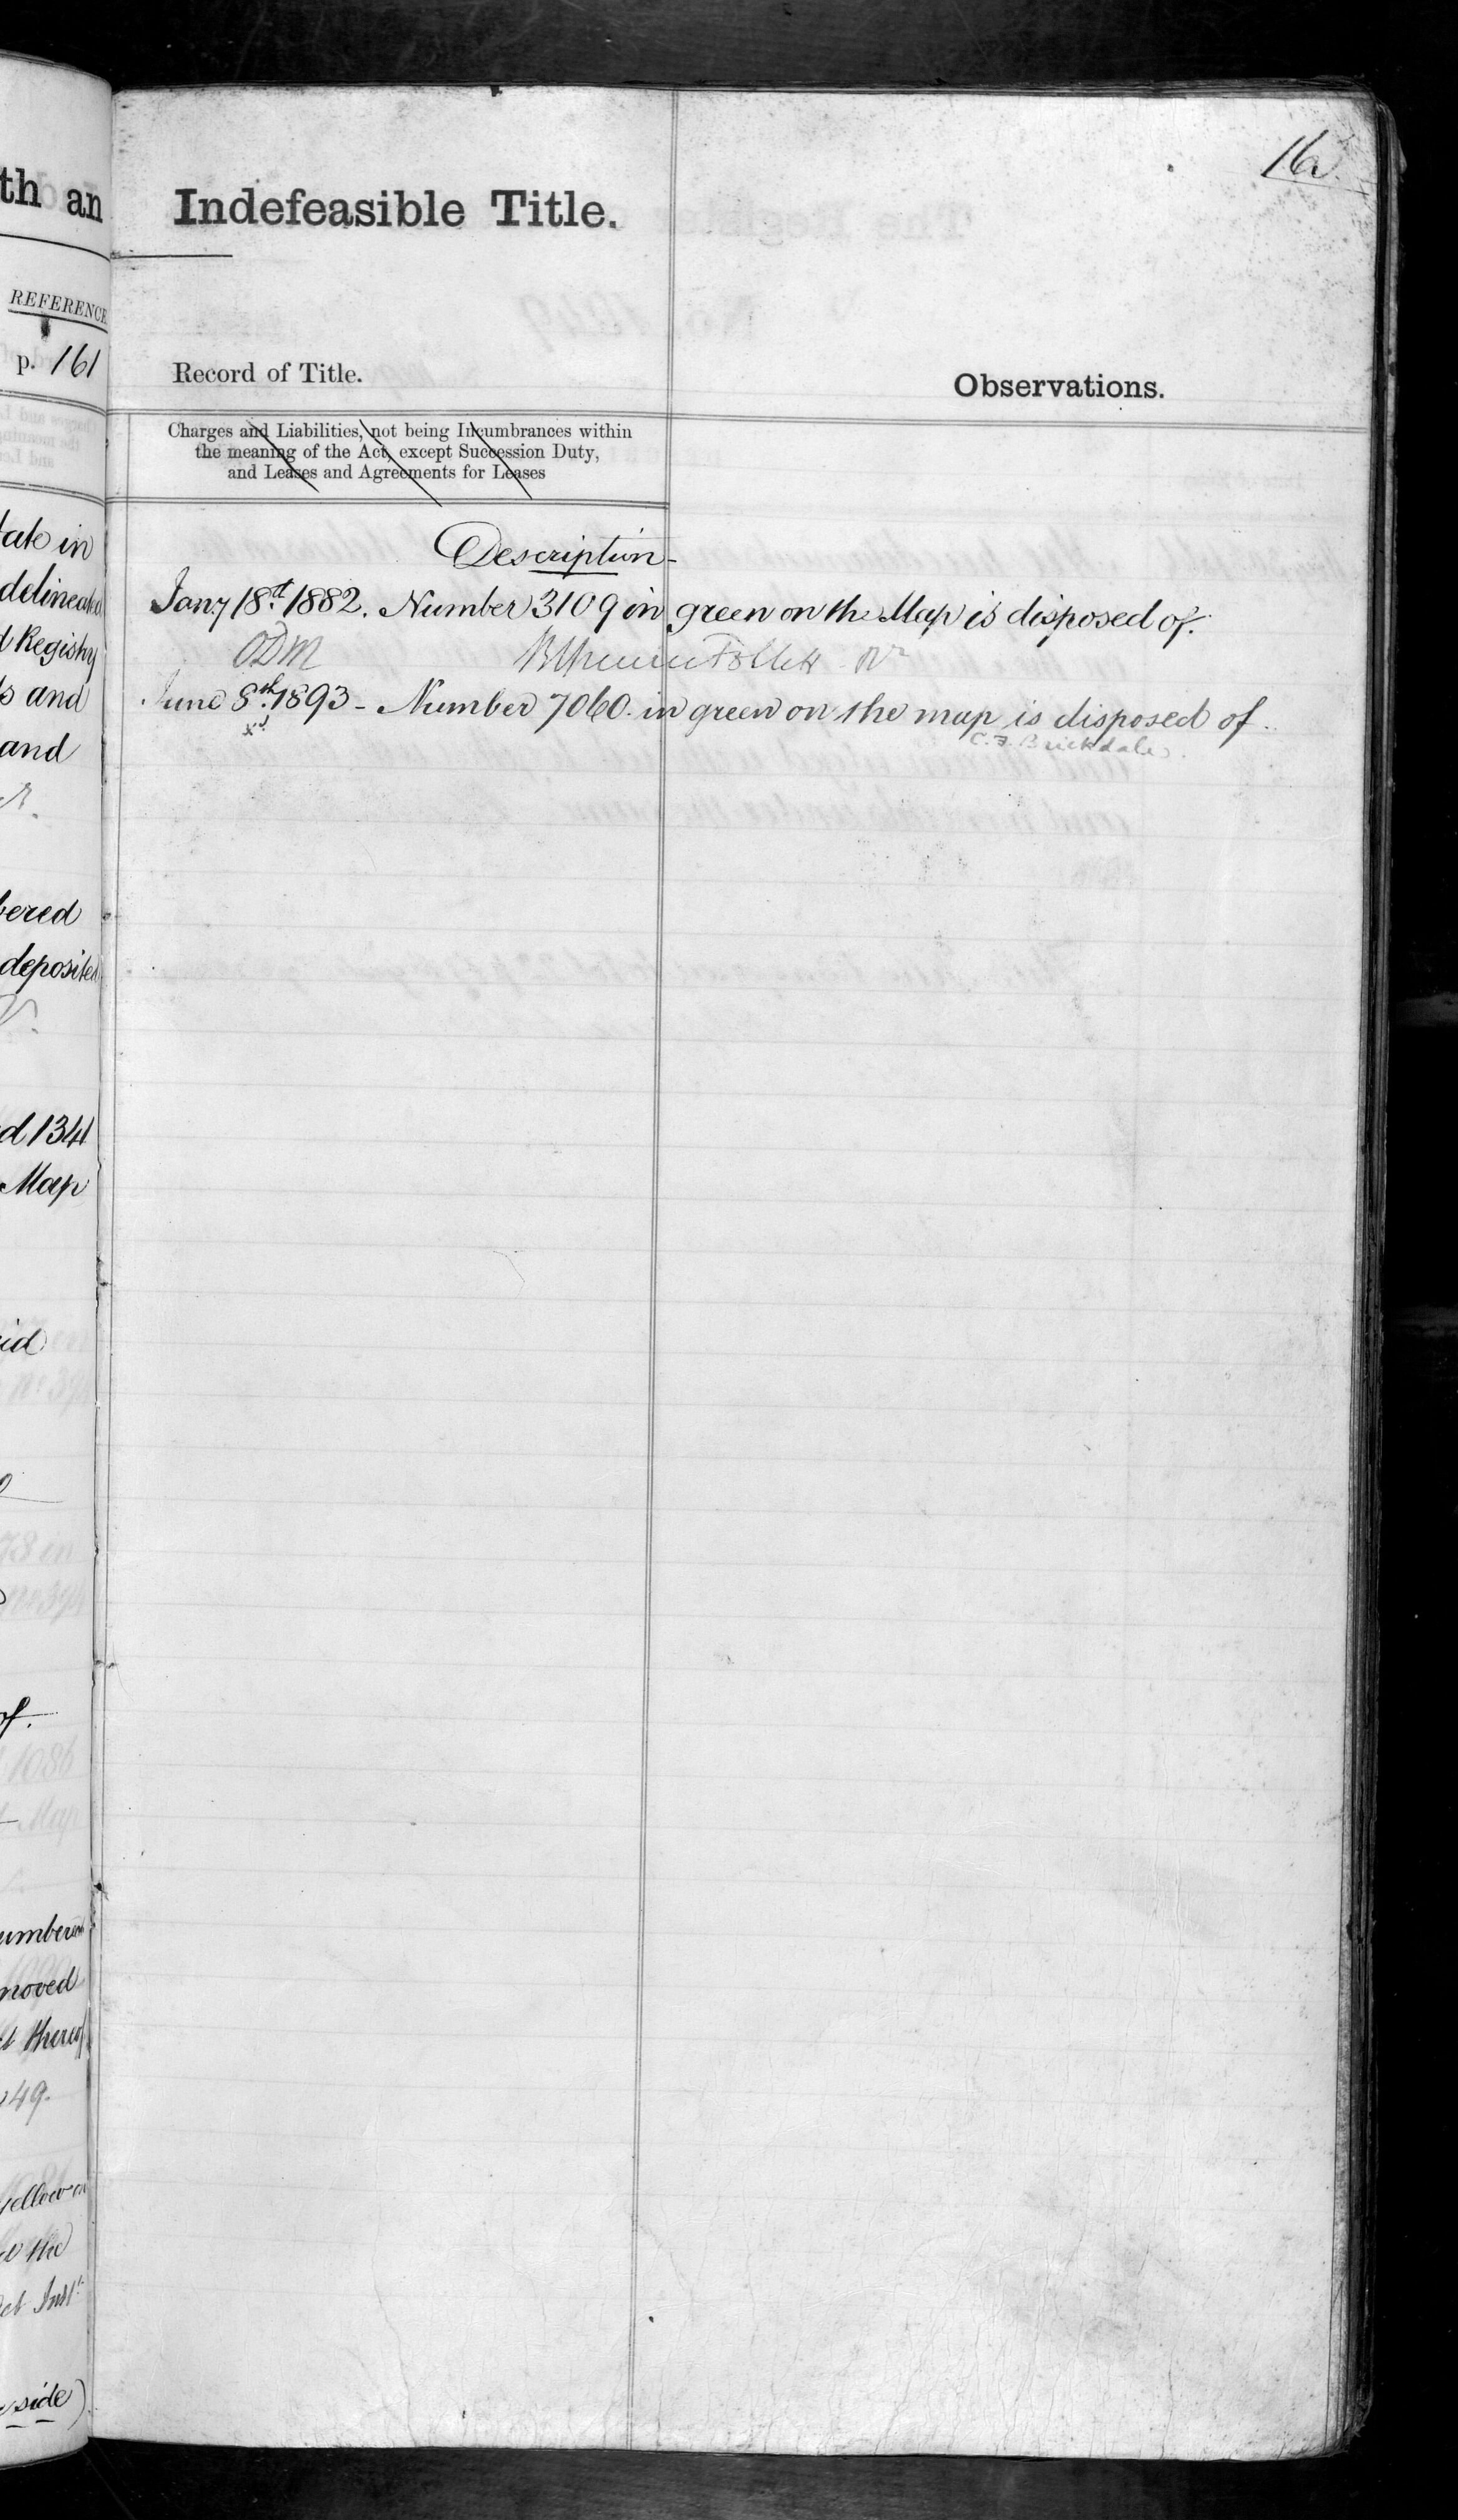 th an
REFERENCE
p. 161
tate in
delineated
d Registry
s and
and
bered
deposited
d 1341
Map
id
of.
umbered
moved
t thereof
149.
yellow on
e the
et Inst
side)
162.
Indefeasible Title.
Record of Title.
Observations.
Charges and Liabilities, not being Incumbrances within
the meaning of the Act, except Succession Duty,
and Leases and Agreements for Leases
Description-
Jany 18th. 1882. Number 3109 in green on the Map is disposed of.
ODM Follett Rr
June 8th. 1893 - Number 7060. in green on the map is disposed of.
xd
C.F. Brickdale.